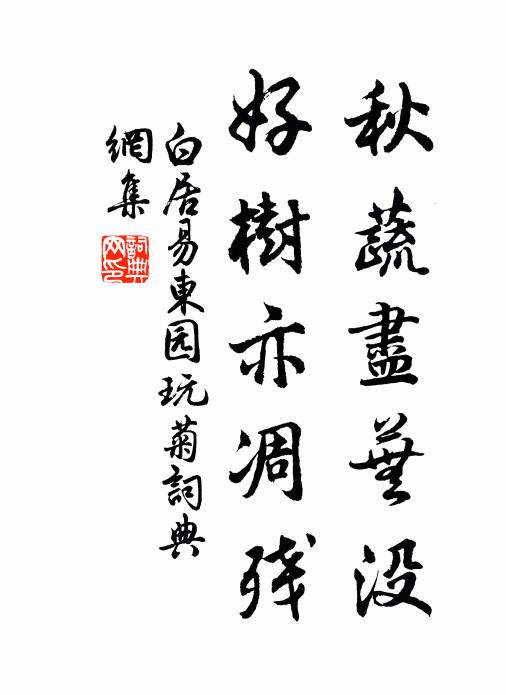 秋蔬盡蕪没
好樹亦凋残
白居易東园玩菊詞典
網集
詞典網印